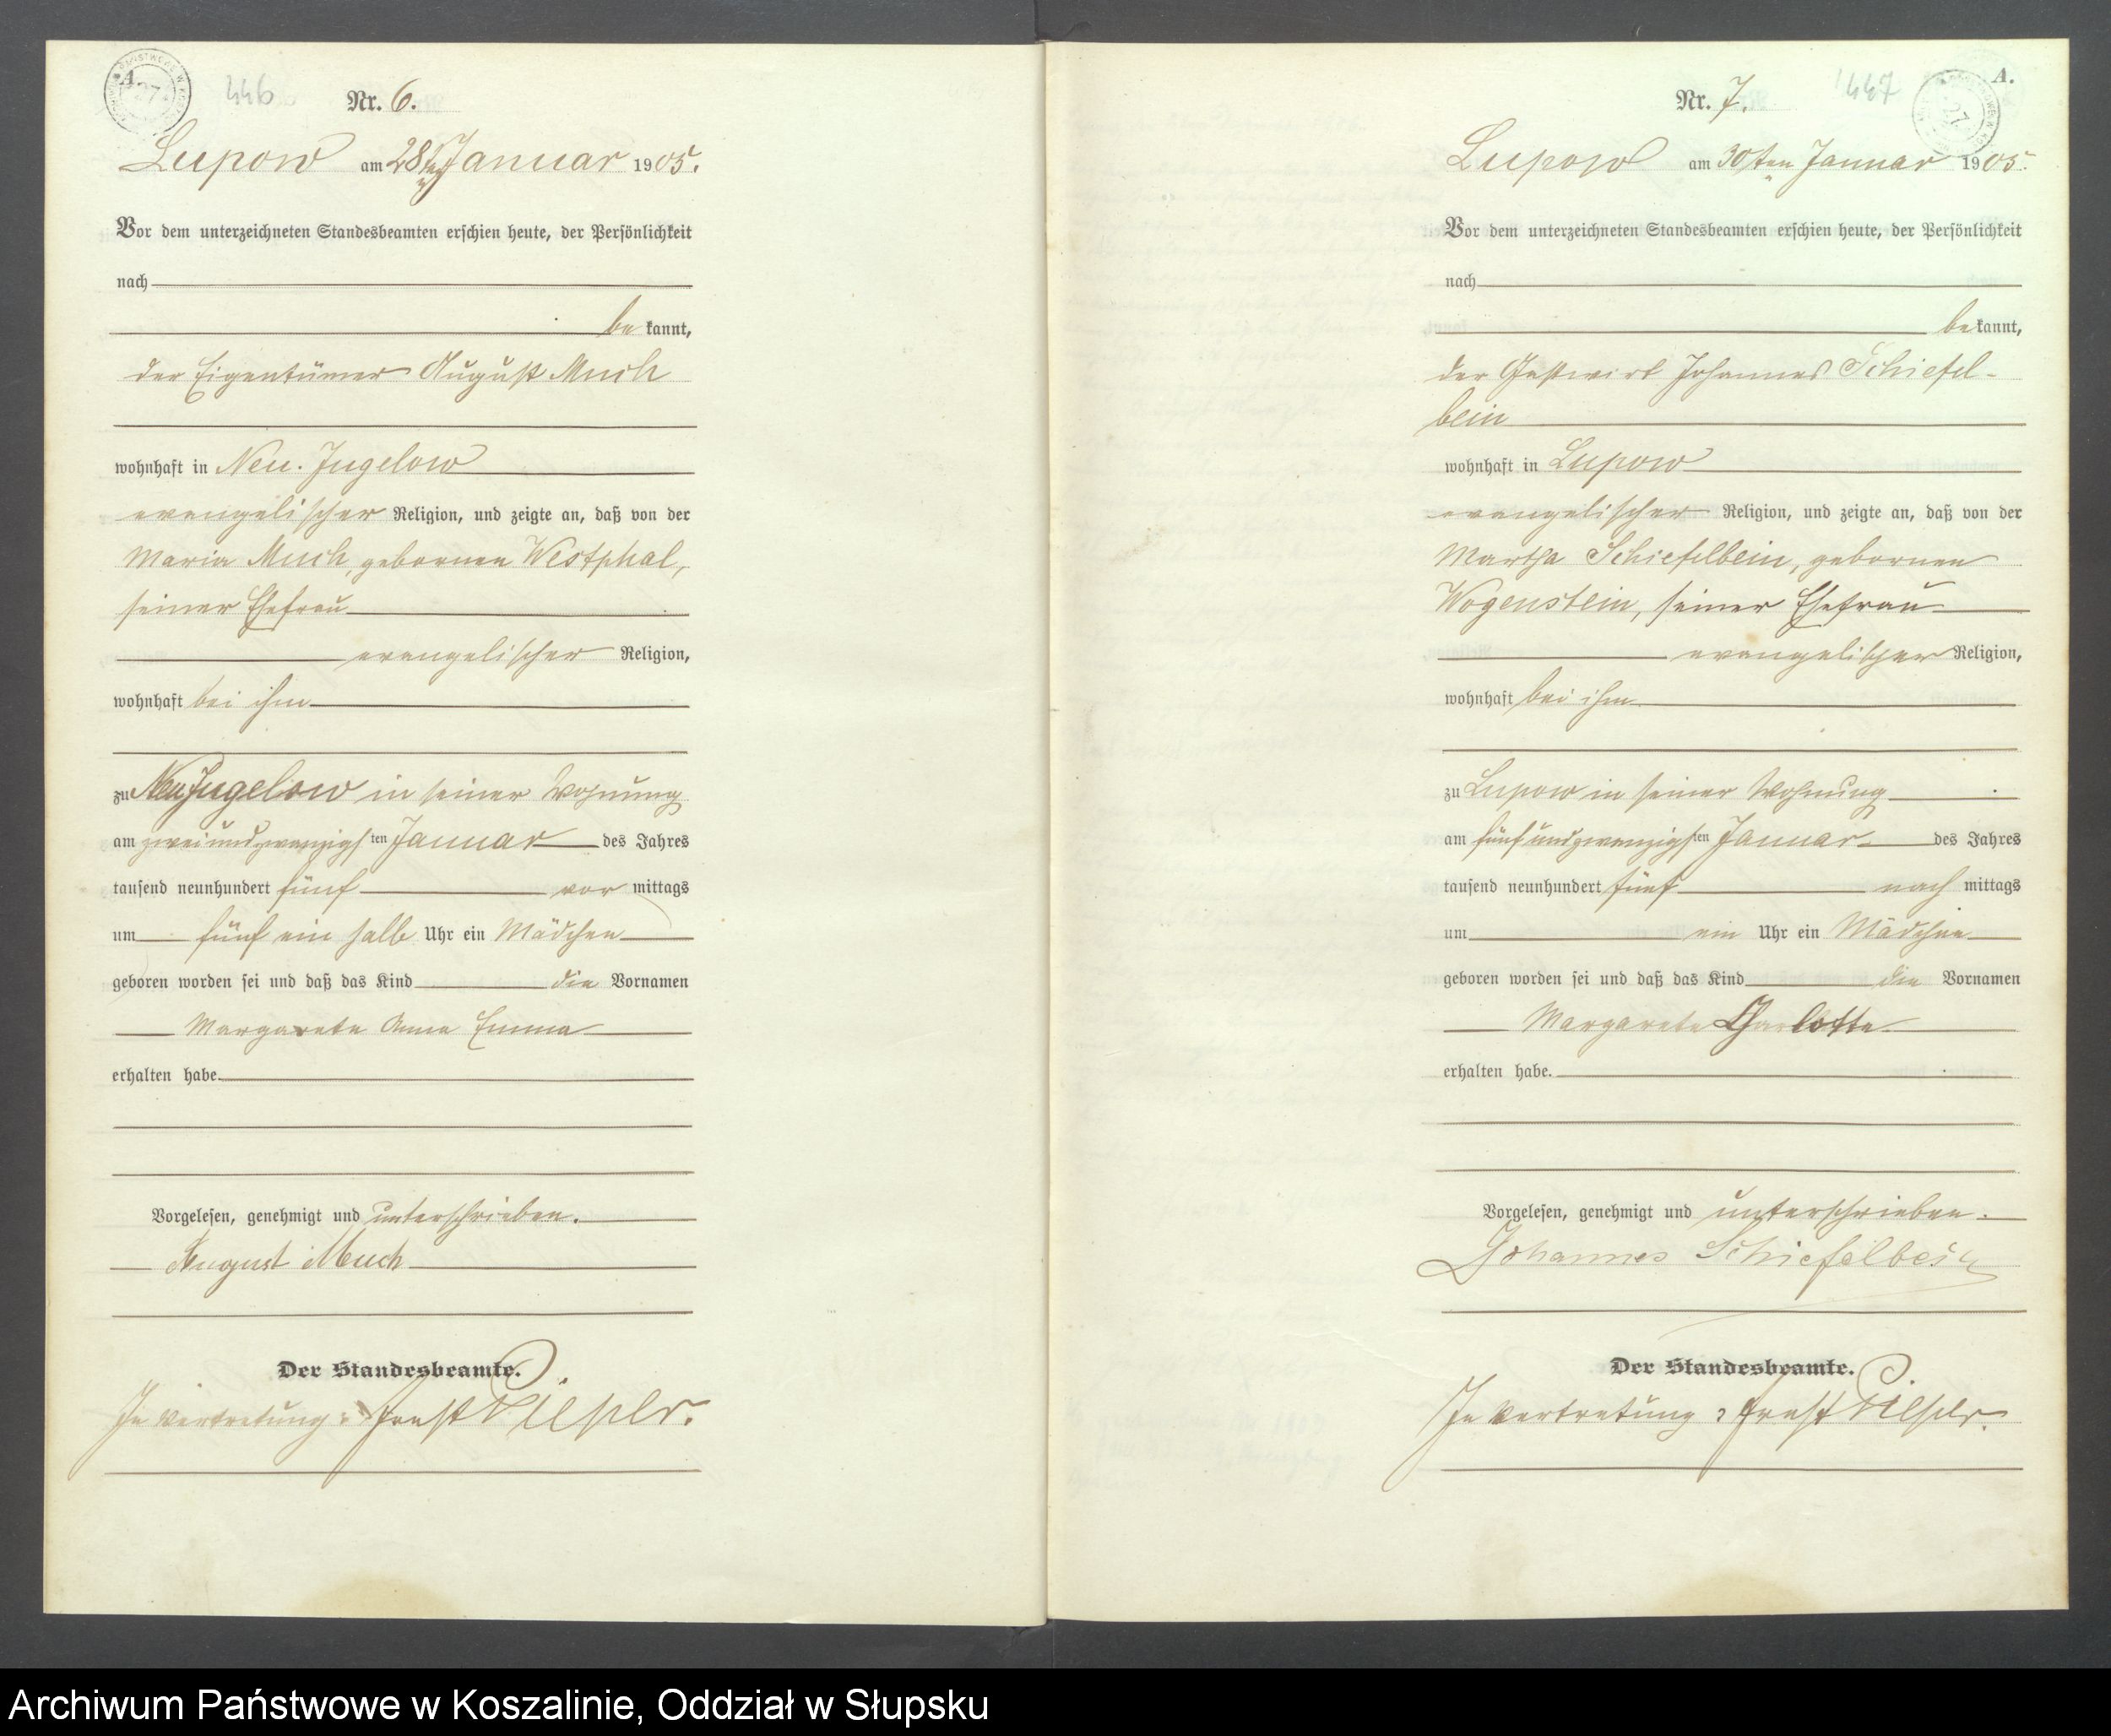 A.
446
Nr. 6.
Lupow am 28ten Januar 1905.
Vor dem unterzeichneten Standesbeamten erschien heute, der Persönlichkeit
nach
be kannt,
der Eigentümer August Much
wohnhaft in Neu. Jugelow
evangelischer Religion, und zeigte an, daß von der
Maria Much, gebornen Westphal,
seiner Ehefrau
evangelischer Religion,
wohnhaft bei ihm
zu Neu Jugelow in seiner Wohnung
am zweiundzwanzigsten Januar des Jahres
tausend neunhundert fünf vor mittags
um fünf ein halb Uhr ein Mädchen
geboren worden sei und daß das Kind die Vornamen
Margarete Anna Emma
erhalten habe.
Vorgelesen, genehmigt und unterschrieben.
August Much
Der Standesbeamte.
In Vertretung: Ernst Piepler.
A.
447
Nr. 7.
Lupow am 30ten Januar 1905.
Vor dem unterzeichneten Standesbeamten erschien heute, der Persönlichkeit
nach
be kannt,
der Gastwirt Johannes Schiefel-
bein
wohnhaft in Lupow
evangelischer Religion, und zeigte an, daß von der
Martha Schiefelbein, gebornen
Wogenstein, seiner Ehefrau
evangelischer Religion,
wohnhaft bei ihm
zu Lupow in seiner Wohnung
am fünfundzwanzigsten Januar des Jahres
tausend neunhundert fünf nach mittags
um ein Uhr ein Mädchen
geboren worden sei und daß das Kind die Vornamen
Margarete Charlotte
erhalten habe.
Vorgelesen, genehmigt und unterschrieben.
Johannes Schiefelbein
Der Standesbeamte.
In Vertretung: Ernst Piepler.
Archiwum Państwowe w Koszalinie, Oddział w Słupsku